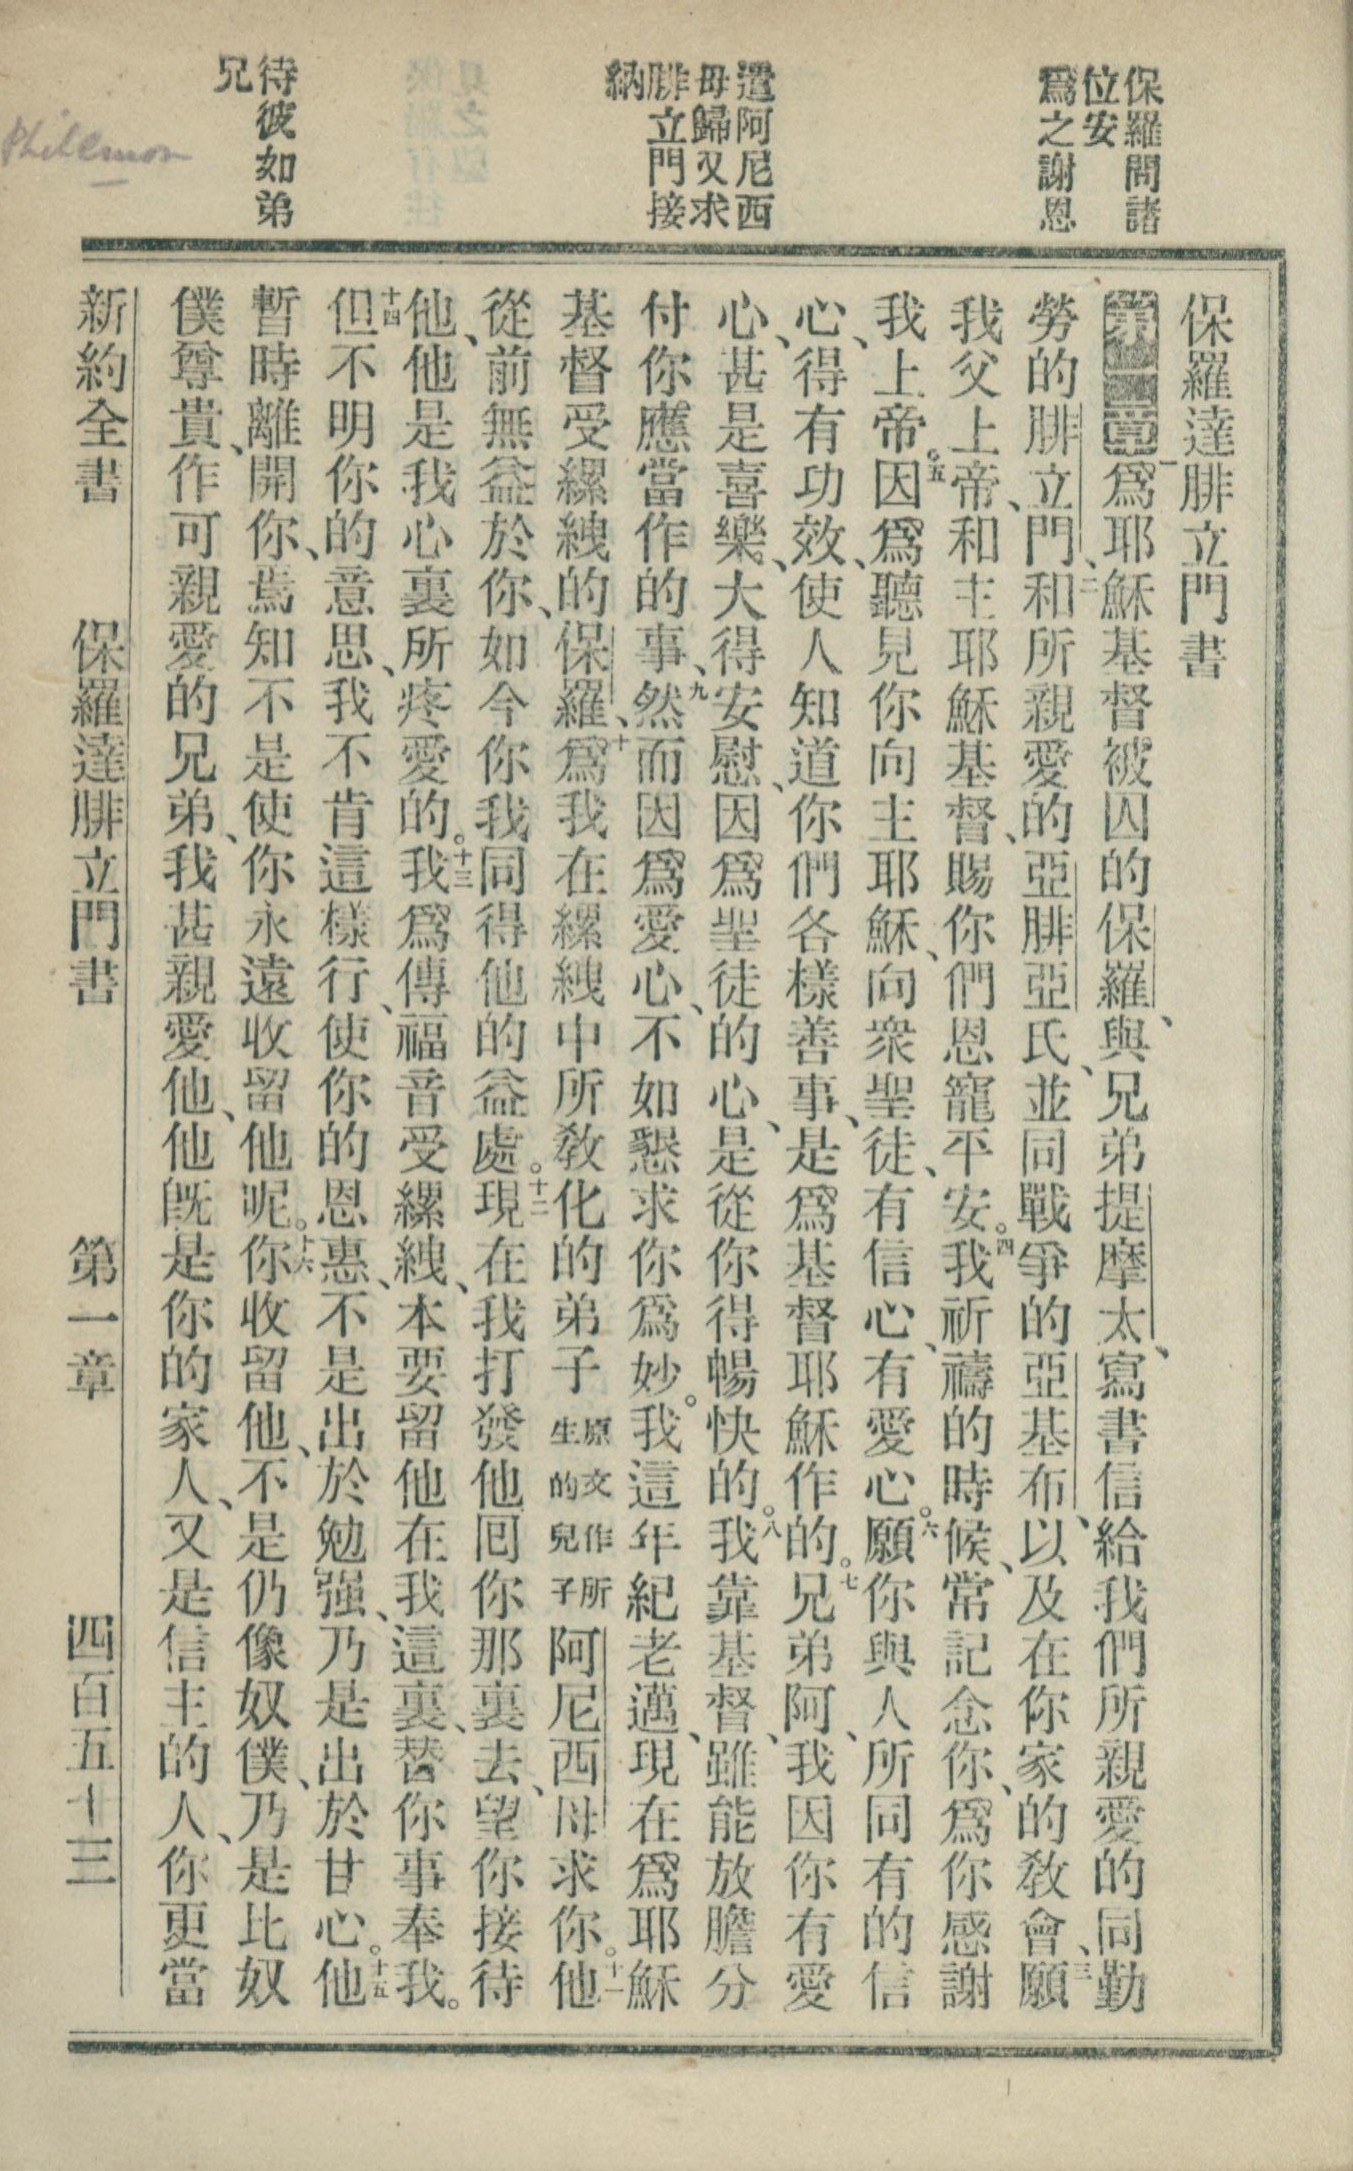 保羅問諸
位安
爲之謝恩
遣阿尼西
母歸又求
腓立門接
納
待彼如弟
兄
Philemon
保羅達腓立門書
第一章一爲耶穌基督被囚的保羅、與兄弟提摩太、寫書信給我們所親愛的同勤
勞的腓立門、二和所親愛的亞腓亞氏、並同戰爭的亞基布、以及在你家的敎會、三願
我父上帝、和主耶穌基督、賜你們恩寵平安。四我祈禱的時候、常記念你、爲你感謝
我上帝。五因爲聽見你向主耶穌、向衆聖徒、有信心、有愛心。六願你與人所同有的信
心、得有功效、使人知道你們各樣善事、是爲基督耶穌作的。七兄弟阿、我因你有愛
心、甚是喜樂、大得安慰、因爲聖徒的心、是從你得暢快的。八我靠基督、雖能放膽分
付你應當作的事、九然而因爲愛心、不如懇求你爲妙。我這年紀老邁、現在爲耶穌
基督受縲絏的保羅、十爲我在縲絏中所敎化的弟子原文作所生的兒子阿尼西母求你。十一他
從前無益於你、如今你我同得他的益處。十二現在我打發他囘你那裏去、望你接待
他、他是我心裏所疼愛的。十三我爲傳福音受縲絏、本要留他在我這裏、替你事奉我。
十四但不明你的意思、我不肯這樣行、使你的恩惠、不是出於勉强、乃是出於甘心。十五他
暫時離開你、焉知不是使你永遠收留他呢。十六你收留他、不是仍像奴僕、乃是比奴
僕尊貴、作可親愛的兄弟、我甚親愛他、他旣是你的家人、又是信主的人、你更當
新約全書 保羅達腓立門書 第一章 四百五十三